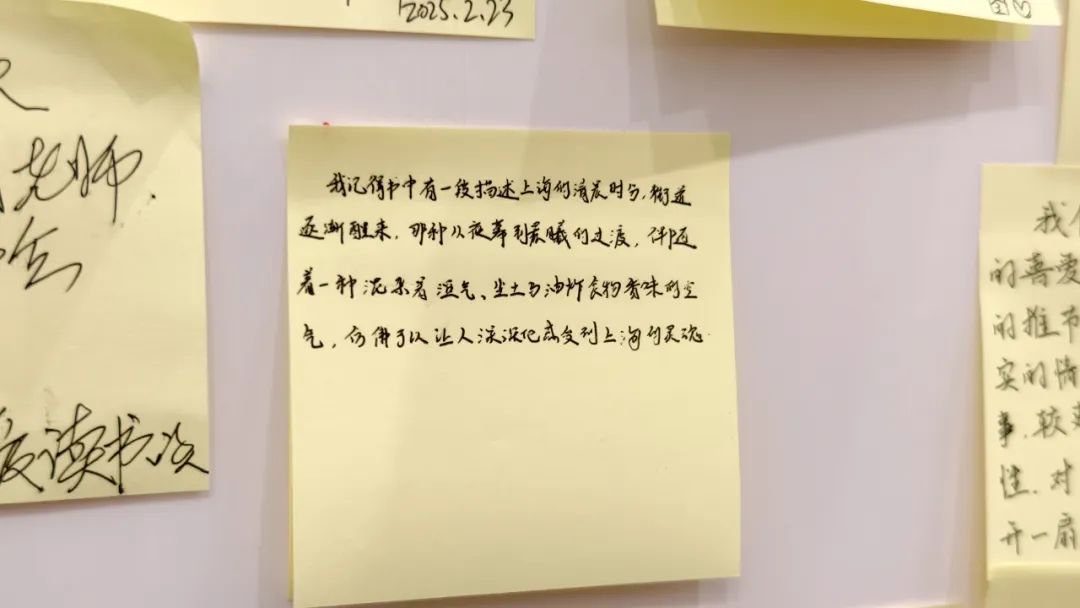 2025.2.23
老师
爱读书会
我记得书中有一段描述上海的清晨时分，街道
逐渐醒来，那种从夜幕到晨曦的过渡，伴随
着一种混杂着湿气、尘土与油炸食物香味的空
气，仿佛可以让人深深地感受到上海的灵魂.
我
的喜爱
的推
实的情
事，较
性，对
开一扇